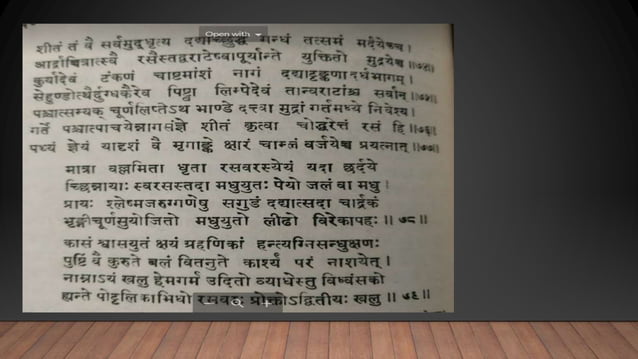 Open with
शीतं तं वै सर्वमुद्धृत्य दद्याच्छुद्धं गन्धं तत्समं मर्दयेच्च।
रसैस्तद्वराटेष्वापूर्यान्ते युक्तितो मुद्रयेच्च ॥७४॥
कुर्यादेवं टंकणं चाष्टमांशं नागं दद्याट्टङ्कणार्धभागम्।
सेहुण्डोत्थैर्दुग्धकैरेव पिष्ट्वा लिम्पेदेवं तान्वराटांश्च सर्वान् ॥७५॥
पश्चात्सम्यक् चूर्णलिप्तेऽथ भाण्डे दत्त्वा मुद्रां गर्तमध्ये निवेश्य।
गर्ते पश्चात्पाचयेन्नागसंज्ञे शीतं कृत्वा चोद्धरेत्तं रसं हि ॥७६॥
पथ्यं ज्ञेयं यादृशं वै मृगाङ्के क्षारं चाम्लं वर्जयेच्च प्रयत्नात् ॥७७॥
मात्रा वल्लमिता धृता रसवरस्येयं यदा छर्दये
च्छिन्नायाः स्वरसस्तदा मधुयुतः पेयो जलं वा मधु।
प्रायः श्लेष्मजरुग्गणेषु सगुडं दद्यात्सदा चार्द्रकं
भृङ्गीचूर्णसुयोजितो मधुयुतो लीढो विरेकापहः ॥७८॥
कासं श्वासयुतं क्षयं ग्रहणिकां हन्त्यग्निसन्धुक्षणः
पुष्टिं वै कुरुते बलं वितनुते कार्श्यं परं नाशयेत्।
नाम्नाऽयं खलु हेमगर्भ उदितो व्याधेस्तु विध्वंसको
ह्यन्ते पोट्टलिकाभिधो रसवरः प्रोक्तोऽद्वितीयः खलु ॥७९॥